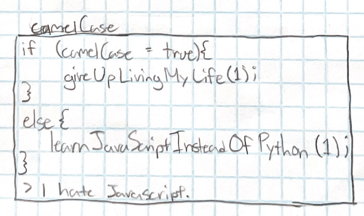 camelCase
if (camelCase = true){
giveUpLivingMyLife(1);
}
else {
learnJavaScriptInsteadOfPython(1);
}
> I hate Javascript.